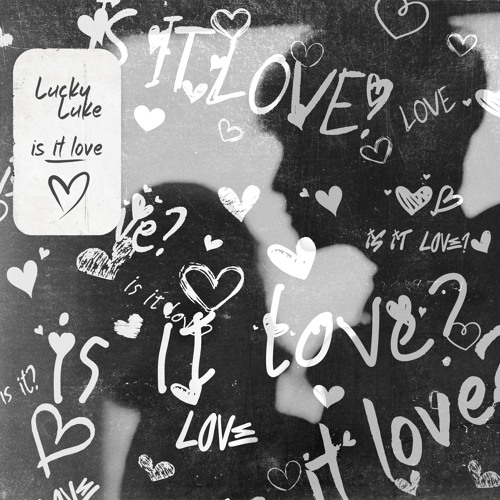 IS IT LOVE?
Lucky
Luke
is it love
LOVE
ve?
is it love?
IS IT LOVE?
is it love?
is it?
LOVE
it love
LOVE